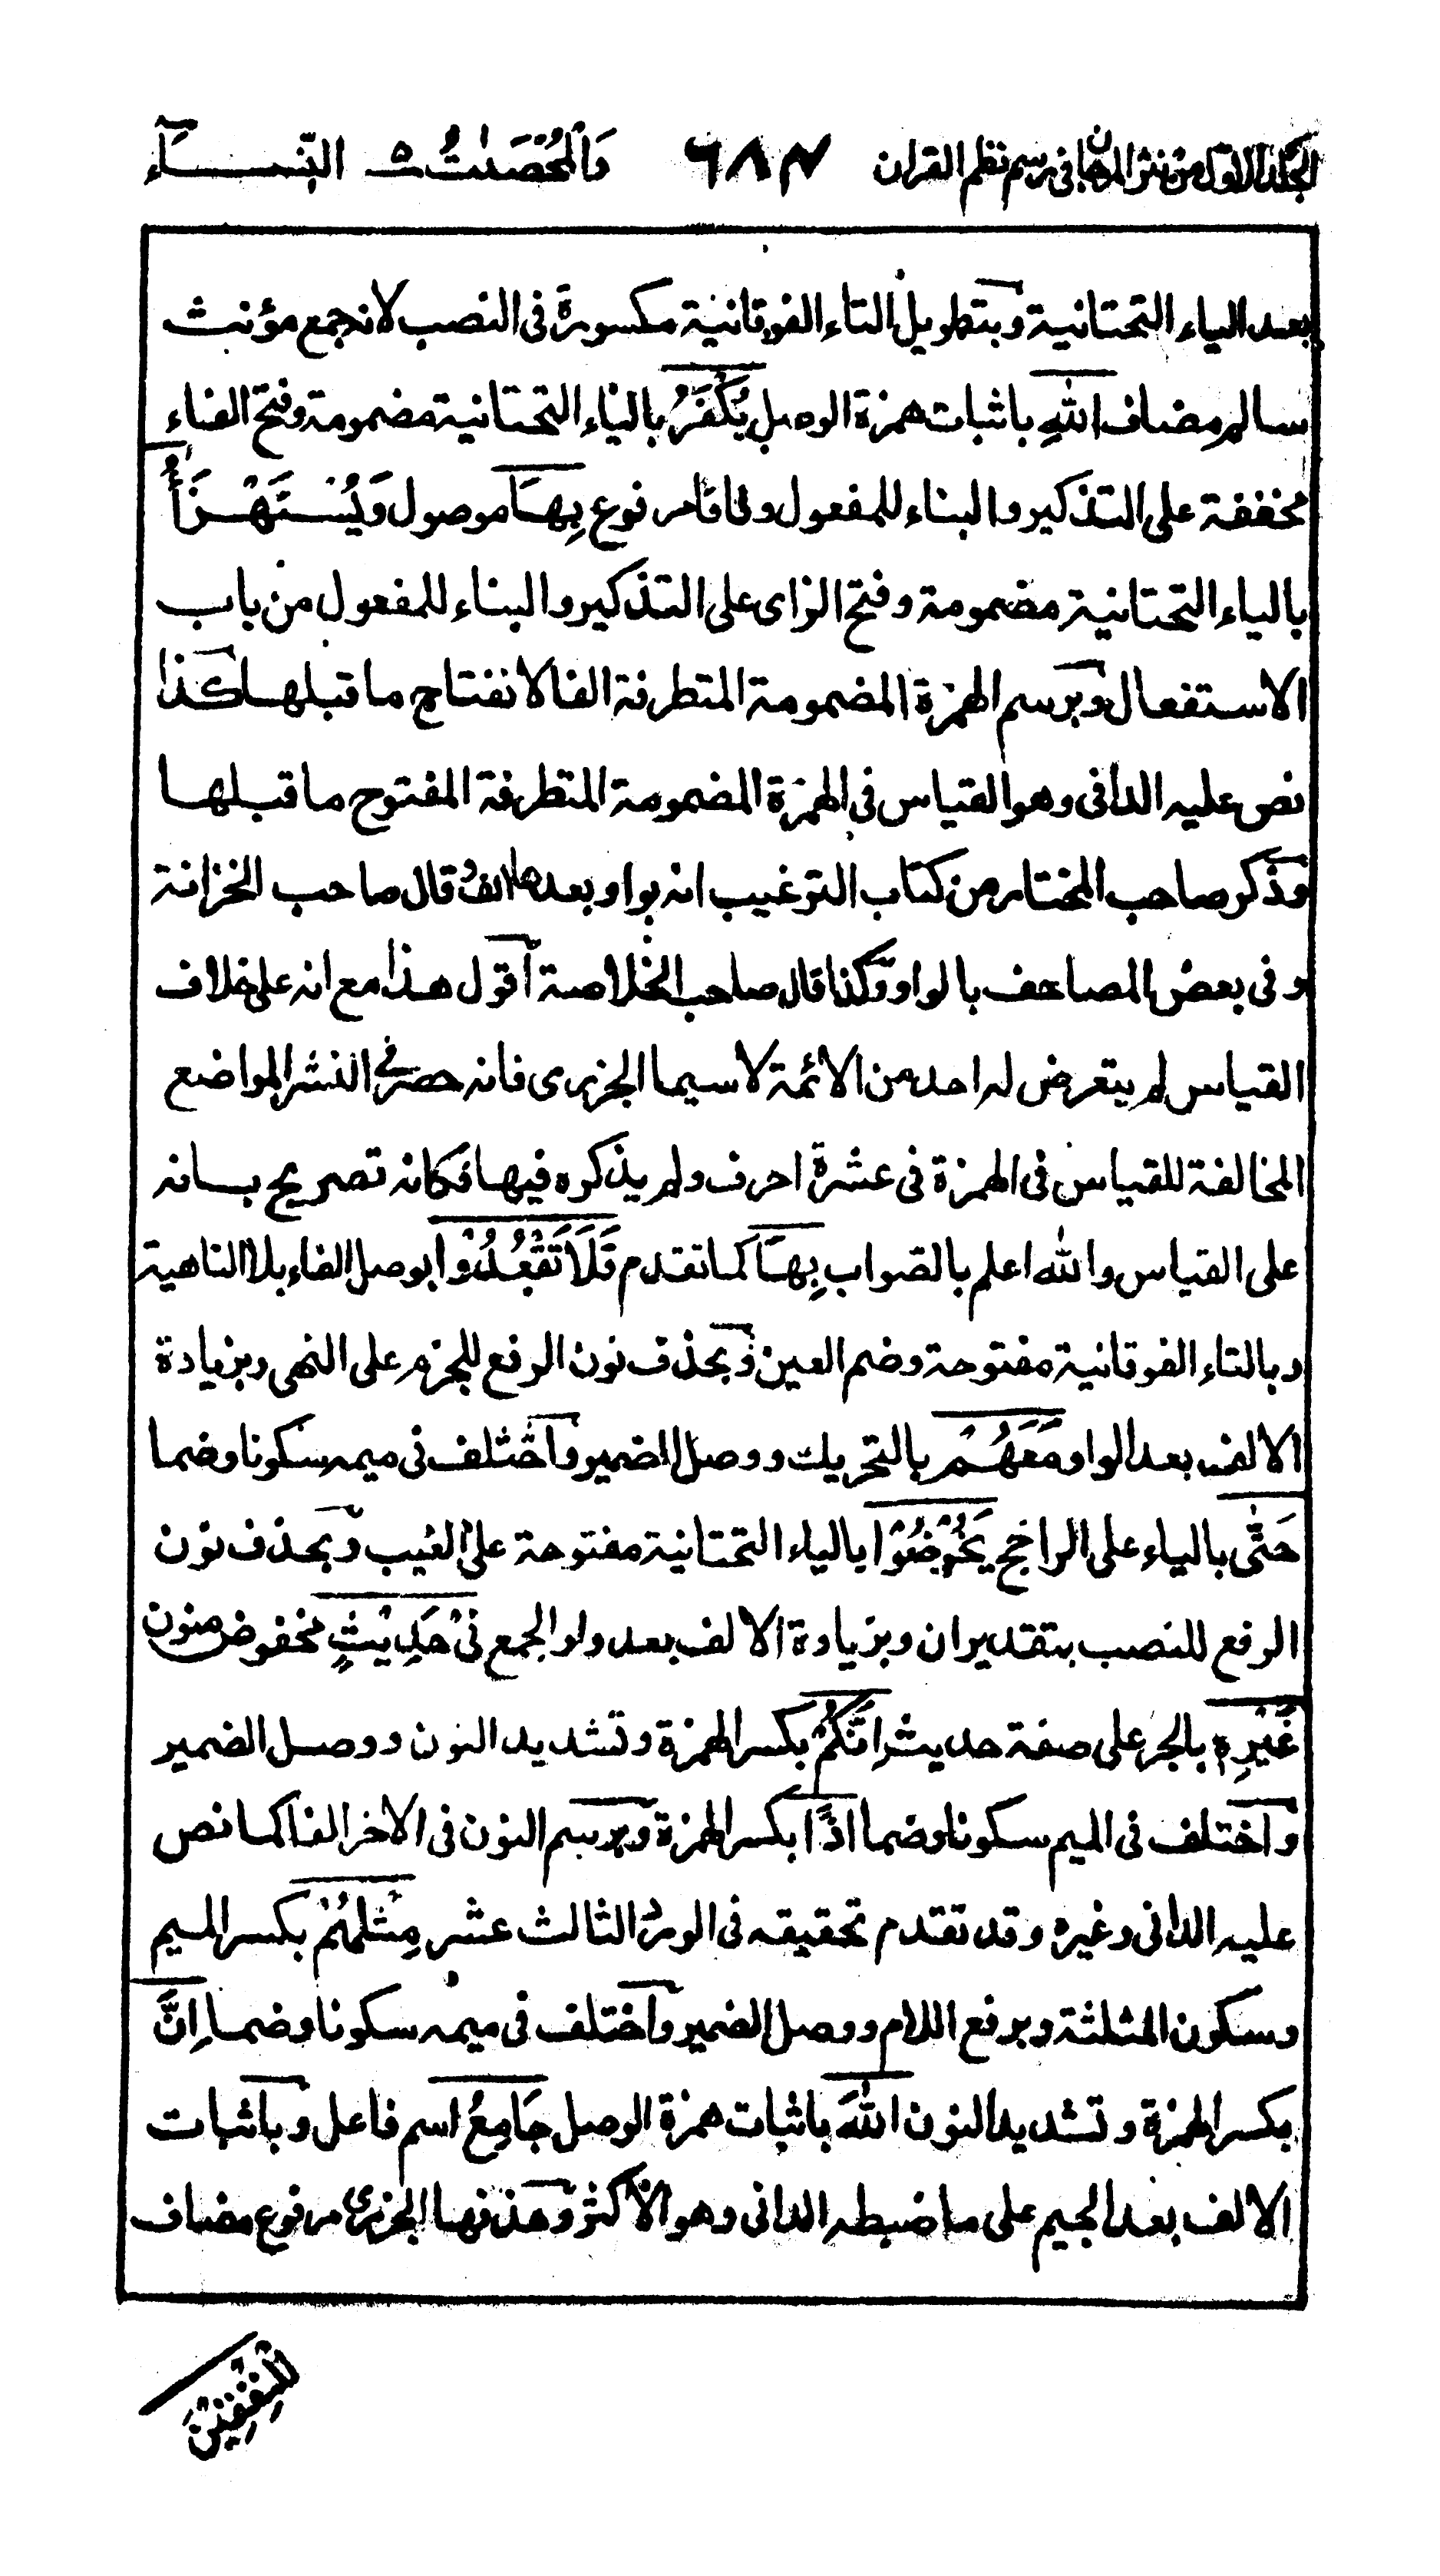 المجلد الاول من نثر المرجان فى رسم نظم القران ٦٨٧ وَالْمُحْصَنٰتُ ٥ النِّسَآء
بعد الياء التحتانية وبتطويل التاء الفوقانية مكسورة فى النصب لانه جمع مؤنث
سالم مضاف اللّٰهِ باثبات همزة الوصل يُكْفَرُ بالياء التحتانية مضمومة وفتح الفاء
مخففة على التذكير والبناء للمفعول وفاقا مرفوع بِهَا موصول وَيُسْتَهْزَأُ
بالياء التحتانية مضمومة وفتح الزاى على التذكير والبناء للمفعول من باب
الاستفعال وبرسم الهمزة المضمومة المتطرفة الفا لانفتاح ما قبلها كذا
نص عليه الدانى وهو القياس فى الهمزة المضمومة المتطرفة المفتوح ما قبلها
وذكر صاحب المختار من كتاب الترغيب انه بواو بعدها الف قال صاحب الخزانة
وفى بعض المصاحف بالواو وكذا قال صاحب الخلاصة اقول هذا مع انه على خلاف
القياس لم يتعرض له احد من الائمة لاسيما الجزرى فانه حصر فى النشر المواضع
المخالفة للقياس فى الهمزة فى عشرة احرف ولم يذكره فيها فكانه تصريح بانه
على القياس والله اعلم بالصواب بِهَا كما تقدم فَلَا تَقْعُدُوْا بوصل الفاء بلا الناهية
وبالتاء الفوقانية مفتوحة وضم العين وبحذف نون الرفع للجزم على النهى وبزيادة
الالف بعد الواو مَعَهُمْ بالتحريك ووصل الضمير واختلف فى ميمه سكونا وضما
حَتّٰى بالياء على الراجح يَخُوْضُوْا بالياء التحتانية مفتوحة على الغيب وبحذف نون
الرفع للنصب بتقدير ان وبزيادة الالف بعد واو الجمع فِىْ حَدِيْثٍ مخفوض منون
غَيْرِهٖ بالجر على صفة حديث اِنَّكُمْ بكسر الهمزة وتشديد النون ووصل الضمير
واختلف فى الميم سكونا وضما اِذًا بكسر الهمزة وبرسم النون فى الاخر الفا كما نص
عليه الدانى وغيره وقد تقدم تحقيقه فى الورد الثالث عشر مِثْلُهُمْ بكسر الميم
وسكون المثلثة وبرفع اللام ووصل الضمير واختلف فى ميمه سكونا وضما اِنَّ
بكسر الهمزة وتشديد النون اللّٰهَ باثبات همزة الوصل جَامِعُ اسم فاعل وباثبات
الالف بعد الجيم على ما ضبطه الدانى وهو الاكثر وحذفها الجزرى مرفوع مضاف
الْمُنٰفِقِيْنَ